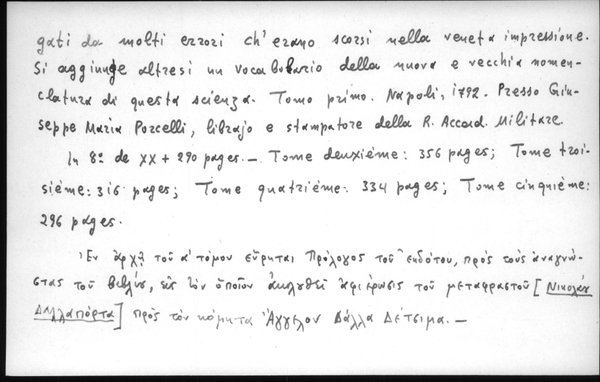 gati da molti errori ch'erano scorsi nella veneta impressione.
Si aggiunge altresi un vocabolario della nuova e vecchia nomen-
clatura di questa scienza. Tomo primo. Napoli, 1792. Presso Giu-
seppe Maria Porcelli, librajo e stampatore della R. Accad. Militare.
In 8º de XX + 290 pages. — Tome deuxième: 356 pages; Tome troi-
sième: 316 pages; Tome quatrième: 334 pages; Tome cinquième:
296 pages.
Ἐν ἀρχῇ τοῦ α' τόμου εὕρηται Πρόλογος τοῦ ἐκδότου, πρὸς τοὺς ἀναγνώ-
στας τοῦ βιβλίου, εἰς τὸν ὁποῖον ἀκολουθεῖ ἀφιέρωσις τοῦ μεταφραστοῦ [Νικολάου
Δαλλαπόρτα] πρὸς τὸν κόμητα Ἄγγελον Δάλλα Δέτσιμα. —